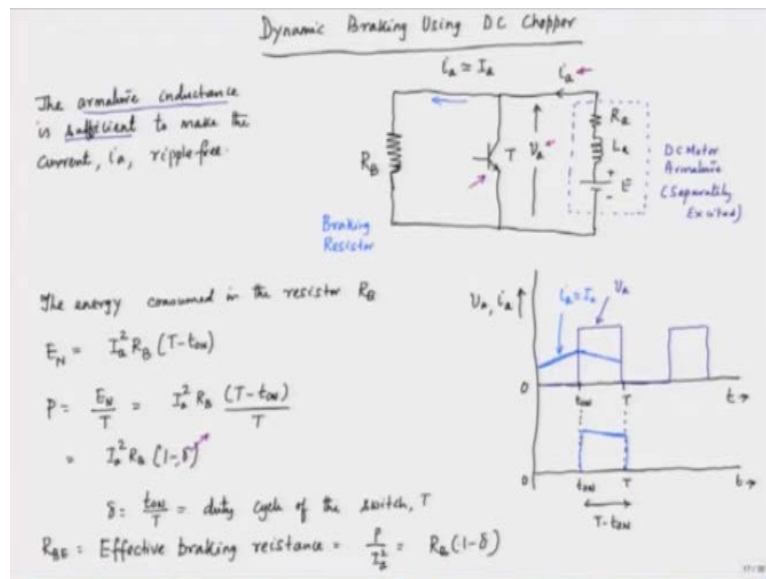 Dynamic Braking Using DC Chopper
The armature inductance
is sufficient to make the
current, ia, ripple-free.
ia ≃ Ia
ia
RB
T
va
Ra
La
+
E
-
DC Motor
Armature
(Separately
Excited)
Braking
Resistor
The energy consumed in the resistor RB
EN = Ia² RB (T-tON)
P = EN/T = Ia² RB (T-tON)/T
= Ia² RB (1-δ)
δ = tON/T = duty cycle of the switch, T
RBE = Effective braking reistance = P/Ia² = RB(1-δ)
va, ia
ia≃Ia
va
0
tON
T
t→
0
tON
T
t→
T-tON
17/38